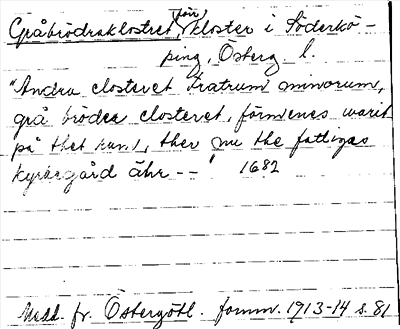 Gråbrödraklostret, (förr) kloster i Söderkö-
ping, Österg l.
"Andra closteret Fratrum minorum,
grå brödea closteret, förmenes warit
på thet rum, ther nu the fattigas
kyrkegård ähr -- " 1682
Medd. fr. Östergötl. fornm. 1913-14 s. 81